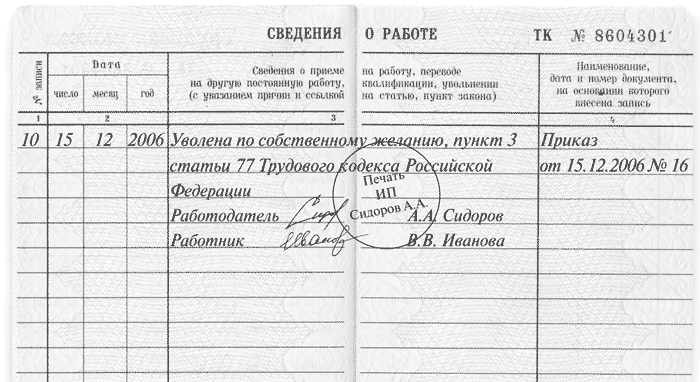 СВЕДЕНИЯ О РАБОТЕ ТК № 8604301
№ записи
Дата
число месяц год
Сведения о приеме на работу, переводе
на другую постоянную работу, квалификации, увольнении
(с указанием причин и ссылкой на статью, пункт закона)
Наименование,
дата и номер документа,
на основании которого
внесена запись
1 2 3 4
10 15 12 2006 Уволена по собственному желанию, пункт 3 Приказ
статьи 77 Трудового кодекса Российской от 15.12.2006 № 16
Федерации
Печать
ИП
Сидоров А.А.
Работодатель Сидор А.А. Сидоров
Работник Иванов В.В. Иванова